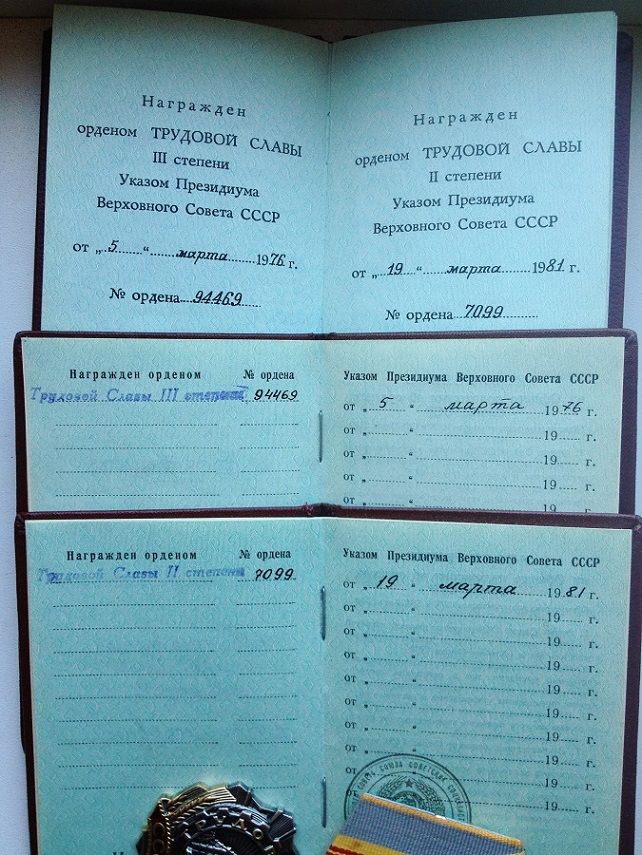 Награжден
орденом ТРУДОВОЙ СЛАВЫ
III степени
Указом Президиума
Верховного Совета СССР
от „ 5 “ марта 1976 г.
№ ордена 94469
Награжден
орденом ТРУДОВОЙ СЛАВЫ
II степени
Указом Президиума
Верховного Совета СССР
от „ 19 “ марта 1981 г.
№ ордена 7099
Награжден орденом № ордена
Трудовой Славы III степени 94469
Указом Президиума Верховного Совета СССР
от „ 5 “ марта 1976 г.
от „ “ 19 г.
от „ “ 19 г.
от „ “ 19 г.
от „ “ 19 г.
Награжден орденом № ордена
Трудовой Славы II степени 7099
Указом Президиума Верховного Совета СССР
от „ 19 “ марта 1981 г.
от „ “ 19 г.
от „ “ 19 г.
от „ “ 19 г.
от „ “ 19 г.
от „ “ 19 г.
от „ “ 19 г.
от „ “ 19 г.
от „ “ 19 г.